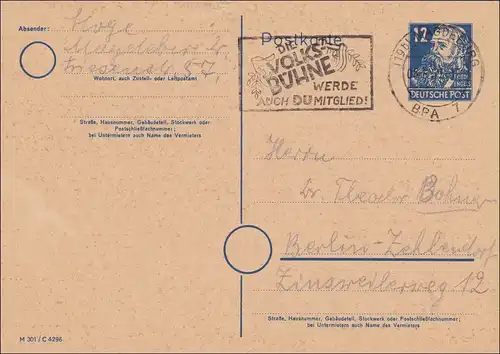 Absender:
Magdeburg
Wohnort, auch Zustell- oder Leitpostamt
Straße, Hausnummer, Gebäudeteil, Stockwerk oder
Postschließfachnummer;
bei Untermietern auch Name des Vermieters
M 301 / C 4296
Postkarte
DIE
VOLKS-
BÜHNE
WERDE
AUCH DU MITGLIED!
MAGDEBURG
BPA 7
12
DEUTSCHE POST
Herrn
Dr. Theodor Bohner
Berlin-Zehlendorf
Zinsweilerweg 12
Straße, Hausnummer, Gebäudeteil, Stockwerk oder Postschließfachnummer;
bei Untermietern auch Name des Vermieters